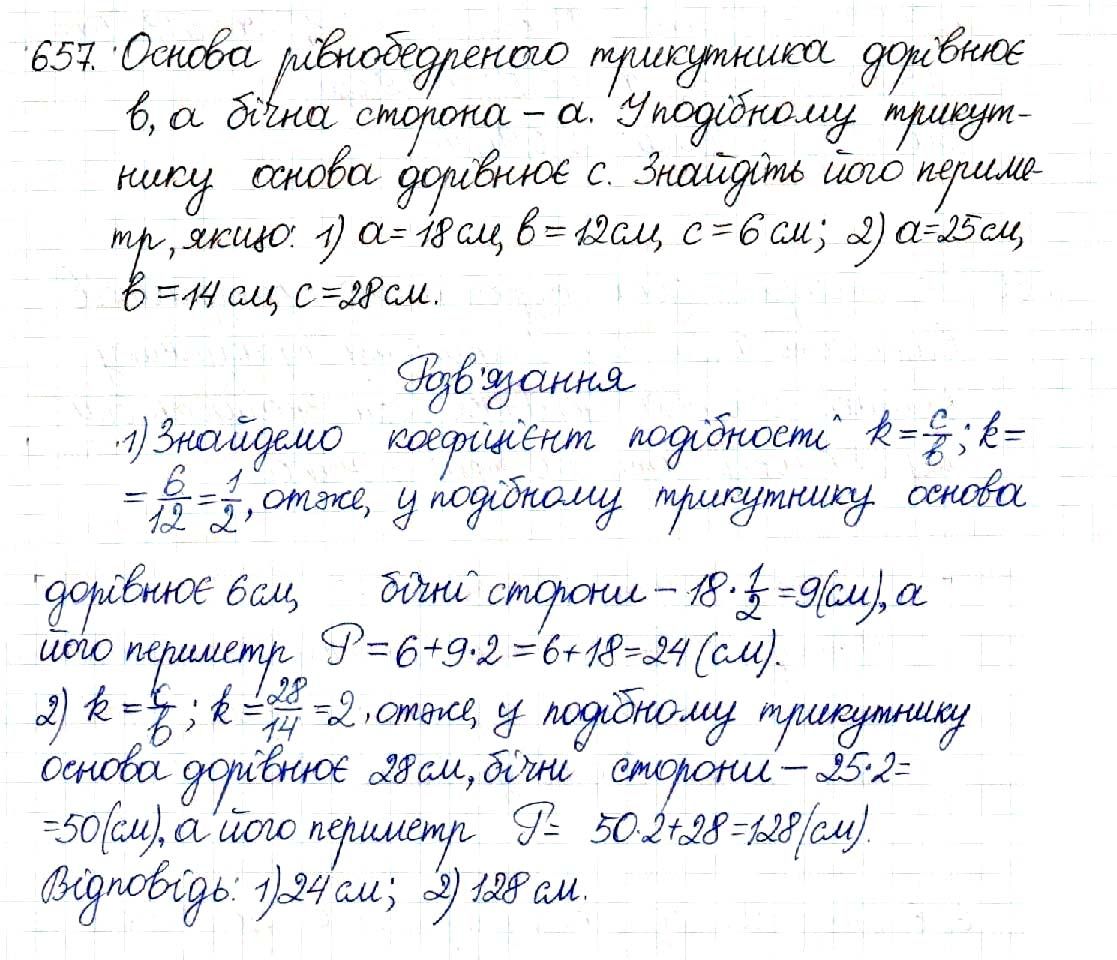 657. Основа рівнобедреного трикутника дорівнює
b, а бічна сторона – a. У подібному трикут-
нику основа дорівнює c. Знайдіть його периме-
тр, якщо: 1) a = 18 см, b = 12 см, c = 6 см; 2) a = 25 см,
b = 14 см, c = 28 см.
Розв'язання
1) Знайдемо коефіцієнт подібності k = c/b; k =
= 6/12 = 1/2, отже, у подібному трикутнику основа
дорівнює 6 см, бічні сторони – 18 · 1/2 = 9 (см), а
його периметр P = 6 + 9 · 2 = 6 + 18 = 24 (см).
2) k = c/b; k = 28/14 = 2, отже, у подібному трикутнику
основа дорівнює 28 см, бічні сторони – 25 · 2 =
= 50 (см), а його периметр P = 50 · 2 + 28 = 128 (см).
Відповідь: 1) 24 см; 2) 128 см.